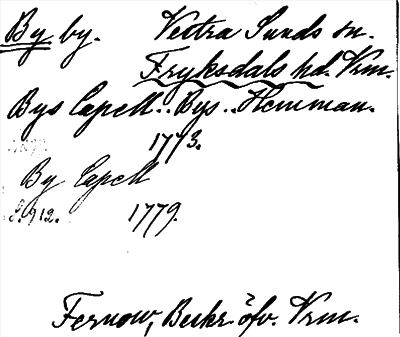 By by. Vestra Sunds sn.
Fryksdals hd. Vrm.
Bys Capell.. Bys.. Hemman.
1773.
By Capell
S. 912. 1779.
Fernow, Beskr. öfv. Vrm.